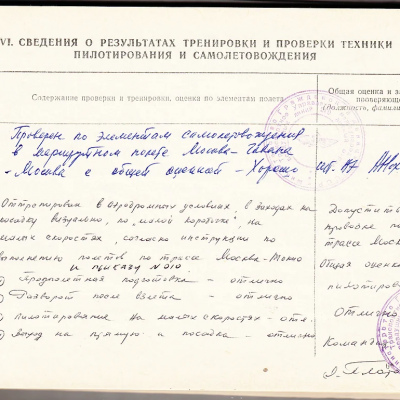 VI. СВЕДЕНИЯ О РЕЗУЛЬТАТАХ ТРЕНИРОВКИ И ПРОВЕРКИ ТЕХНИКИ
ПИЛОТИРОВАНИЯ И САМОЛЕТОВОЖДЕНИЯ
Содержание проверки и тренировки, оценки по элементам полета
Общая оценка и
(Должность,
Проверен по элементам самолетовождения
в маршрутном полете Москва-Гавана
-Москва с общей оценкой - Хорошо
Оттренирован в аэродромных условиях в заходах на
посадку визуально, по "малой коробочке", на
малых скоростях, согласно инструкции по
выполнению полетов по трассе Москва-Токио
и приказу N 010
Предполетная подготовка - отлично
Разворот после взлета - отлично
Пилотирование на малых скоростях - отл
Выход на прямую и посадка - отлично
Допустить
трасса Москва
Общая оценка
пилотиров
Отлично
Коман